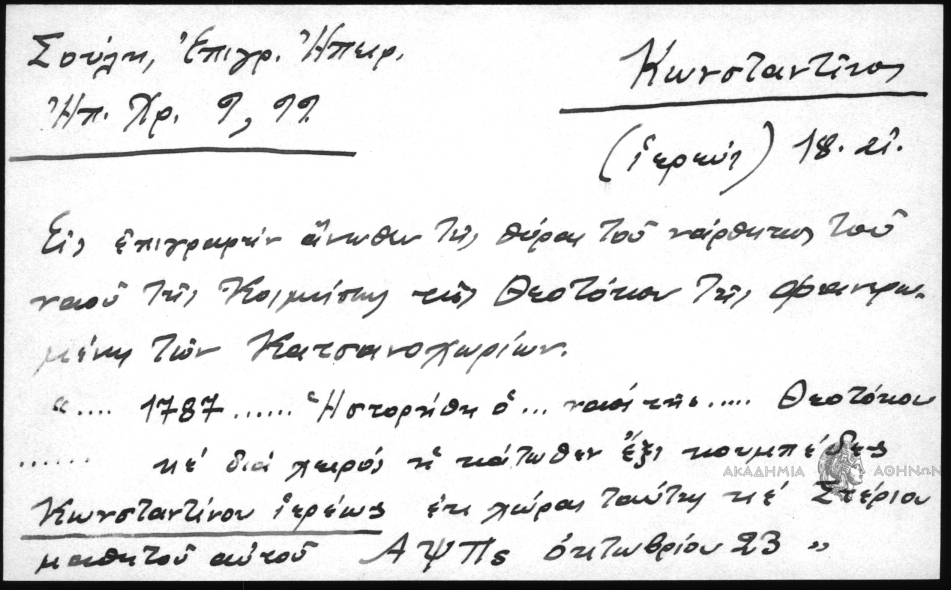 Σούλη, Ἐπιγρ. Ἠπειρ.
Ἠπ. Χρ. 9, 99.
Κωνσταντῖνος
(ἱερεύς) 18. αἰ.
Εἰς ἐπιγραφὴν ἄνωθεν τῆς θύρας τοῦ νάρθηκος τοῦ
ναοῦ τῆς Κοιμήσεως τῆς Θεοτόκου τῆς Φανερω-
μένης τῶν Κατσανοχωρίων.
".... 1787 ...... Ἡστορήθη ὁ ... ναός τῆς ..... Θεοτόκου
...... κέ διά χειρός ἡ κάτωθεν ἕξι κουμπέδες
Κωνσταντίνου ἱερέως ἐκ χώρας ταύτης κέ Στέριου
μαθητοῦ αὐτοῦ ΑΨΠς ὀκτωβρίου 23 "
ΑΚΑΔΗΜΙΑ ΑΘΗΝΩΝ